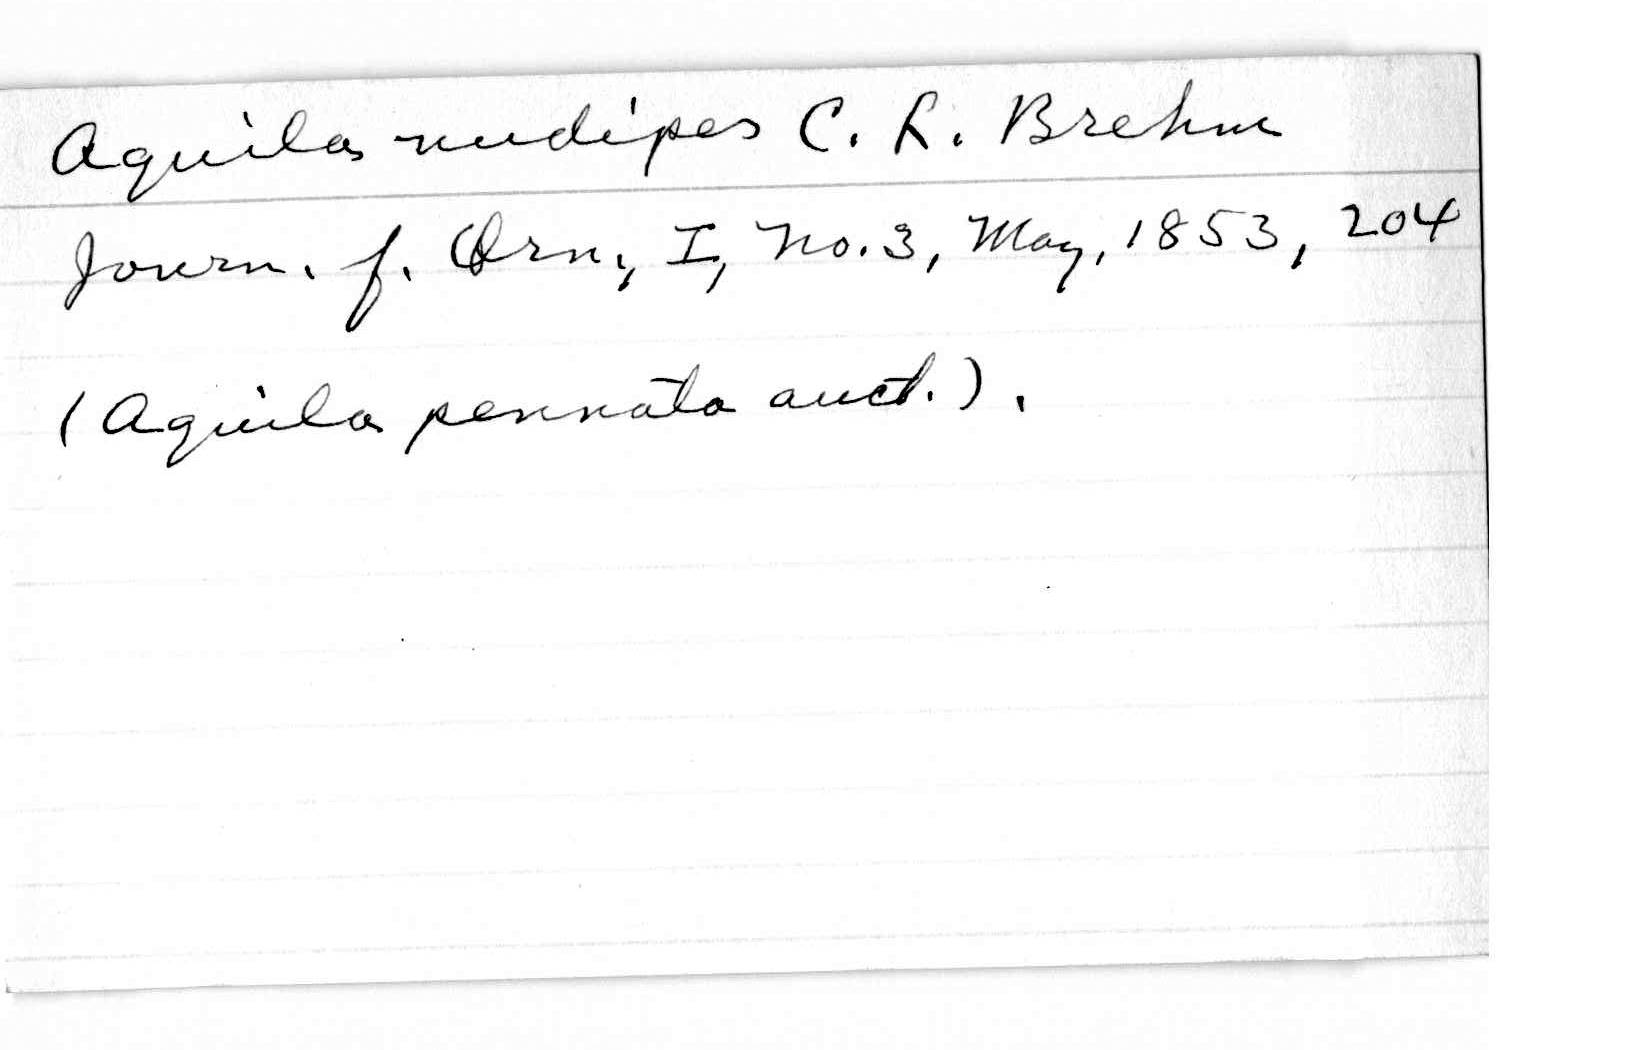 Aquila nudipes C. L. Brehm
Journ. f. Orn., I, No. 3, May, 1853, 204
(Aquila pennata auct.).